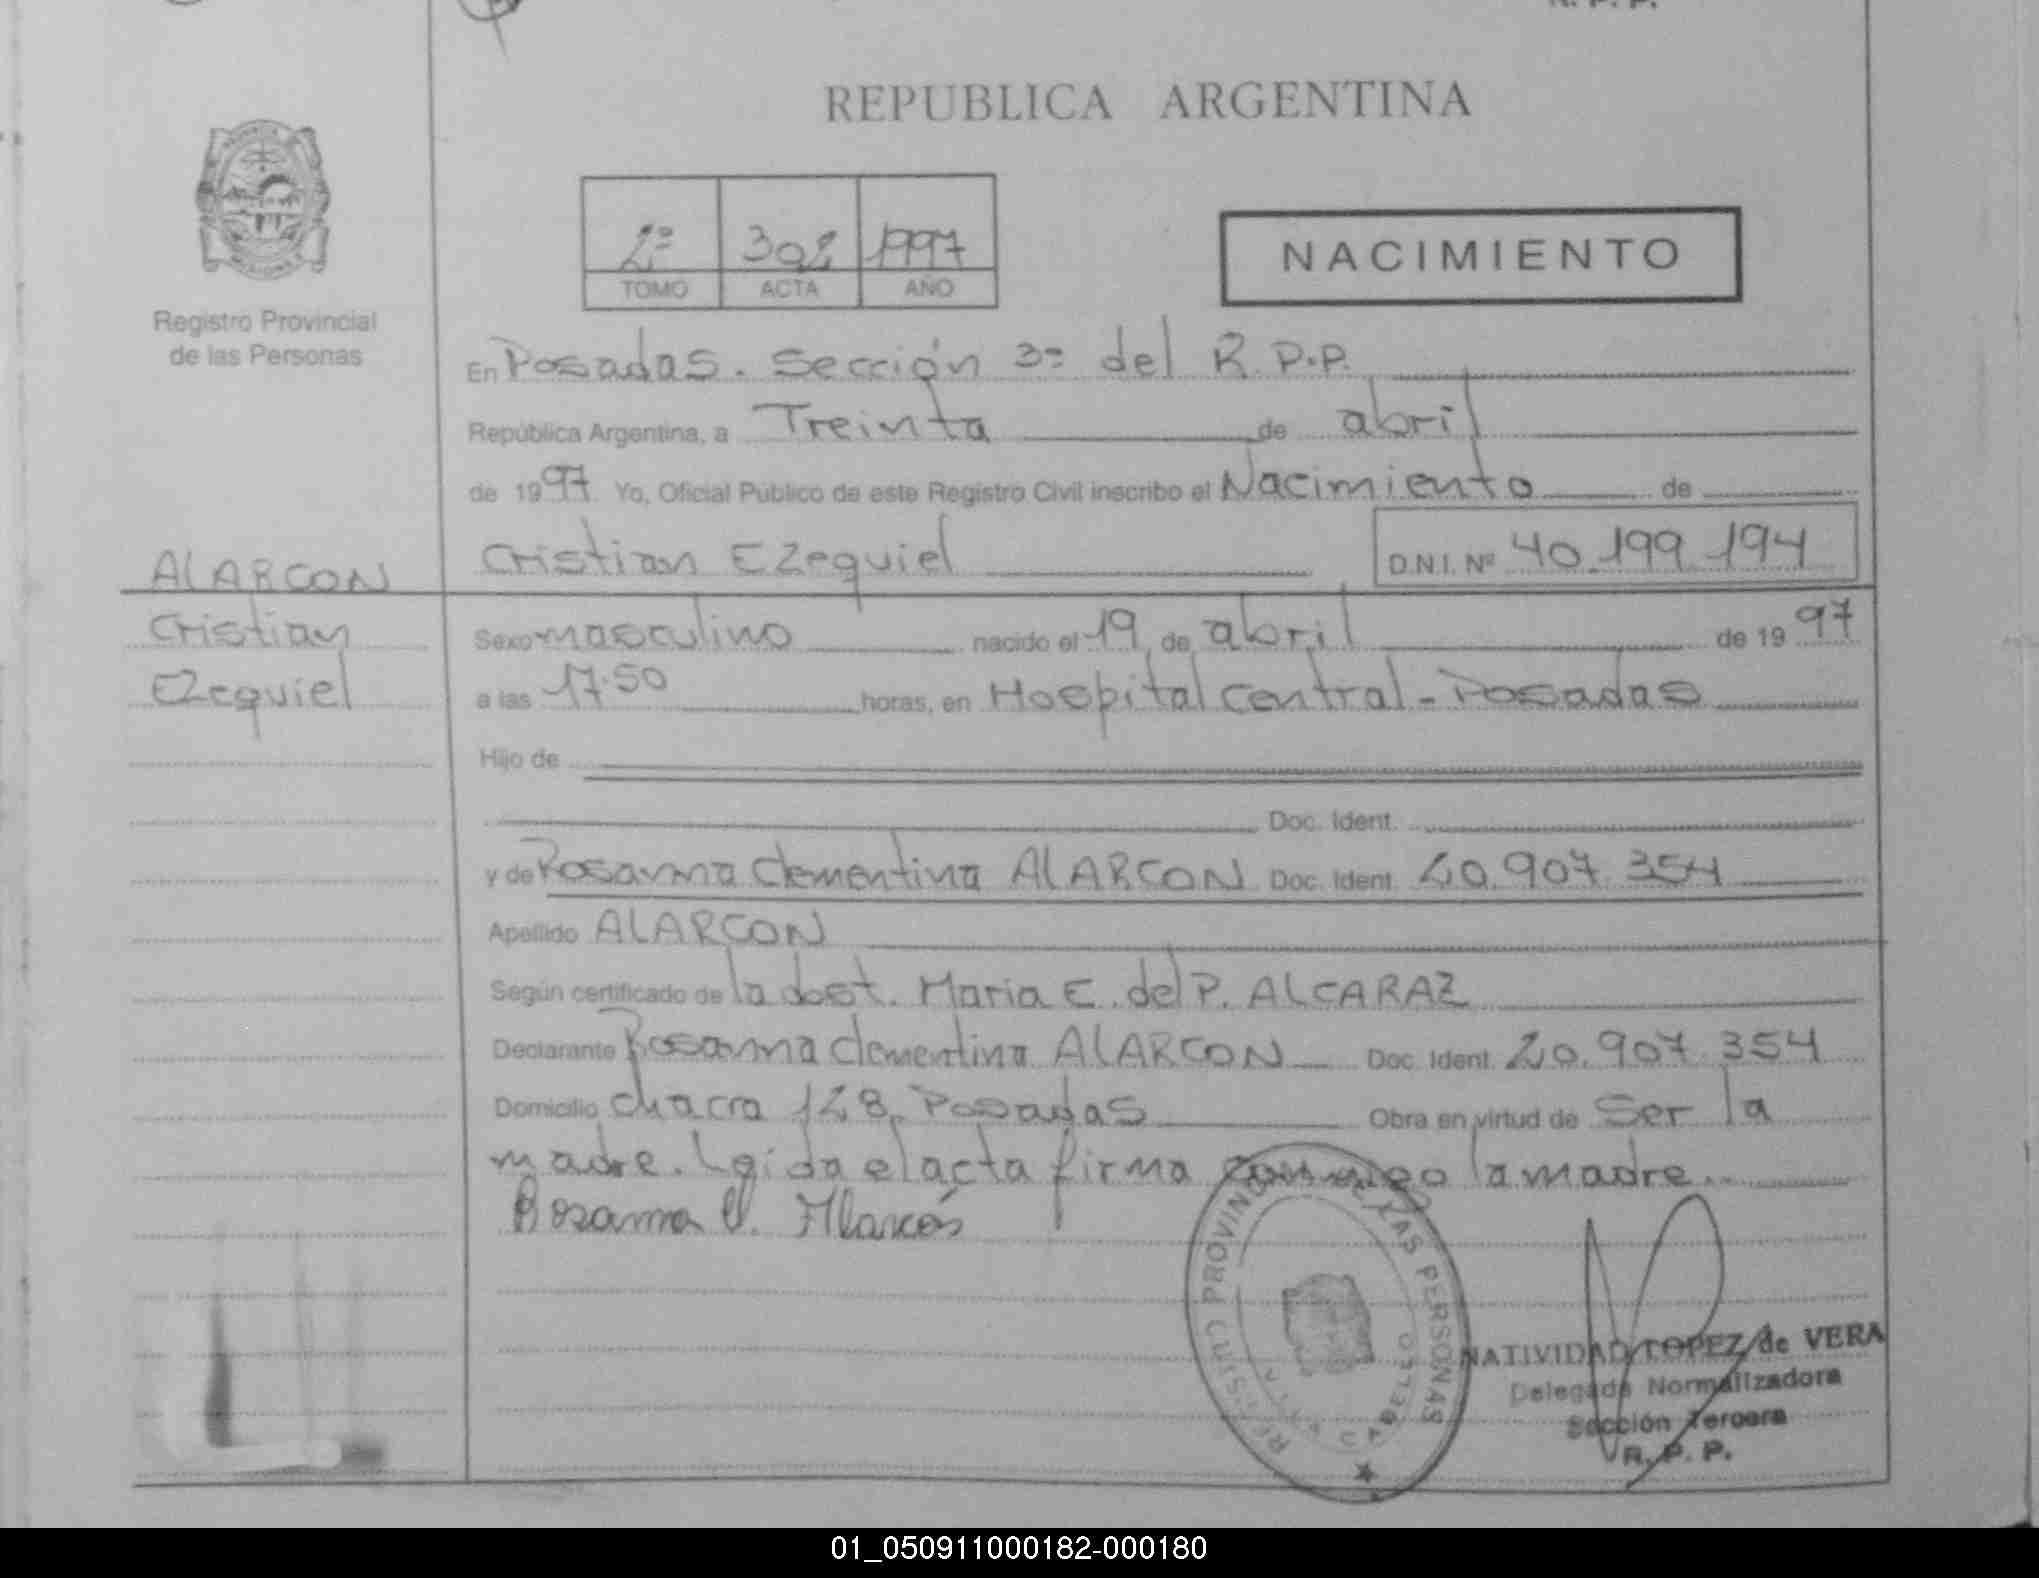 R. P. P.
REPUBLICA ARGENTINA
2º 302 1997
TOMO ACTA AÑO
NACIMIENTO
Registro Provincial
de las Personas
En Posadas. Sección 3º del R.P.P.
República Argentina, a Treinta de abril
de 1997 Yo, Oficial Público de este Registro Civil inscribo el Nacimiento de
ALARCON
Cristian Ezequiel D.N.I. Nº 40.199.194
Cristian
Ezequiel
Sexo masculino nacido el 19 de abril de 1997
a las 17.50 horas, en Hospital Central - Posadas
Hijo de
Doc. Ident.
y de Rosanna Clementina ALARCON Doc. Ident. 20.907.354
Apellido ALARCON
Según certificado de la doct. Maria E. del P. ALCARAZ
Declarante Rosanna Clementina ALARCON Doc. Ident. 20.907.354
Domicilio chacra 128, Posadas Obra en virtud de Ser la
madre. Leida el acta firma conmigo la madre.
Rosanna C. Alarcón
REGISTRO PROVINCIAL DE LAS PERSONAS
VILLA CABELLO
NATIVIDAD LOPEZ de VERA
Delegada Normalizadora
Sección Tercera
R. P. P.
01_050911000182-000180